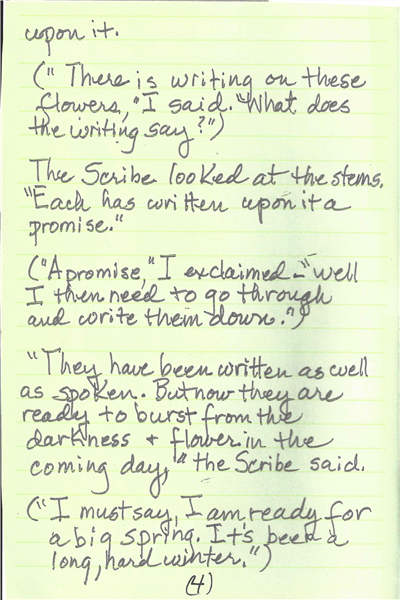 upon it.
(" There is writing on these
flowers," I said. "What does
the writing say?")
The Scribe looked at the stems.
"Each has written upon it a
promise."
("A promise," I exclaimed - "well
I then need to go through
and write them down.")
"They have been written as well
as spoken. But now they are
ready to burst from the
darkness + flower in the
coming day," the Scribe said.
("I must say, I am ready for
a big spring. It's been a
long, hard winter.")
(4)